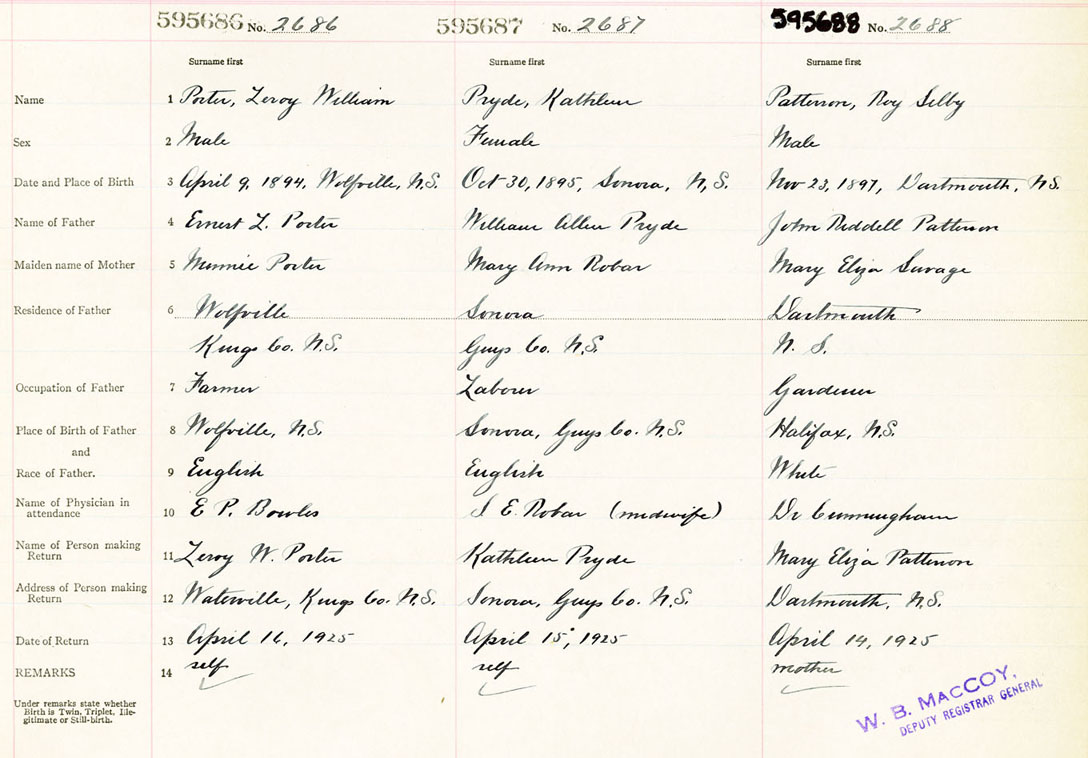 595686 No. 2686 595687 No. 2687 595688 No. 2688
Surname first Surname first Surname first
Name 1 Porter, Leroy William Pryde, Kathleen Patterson, Roy Selby
Sex 2 Male Female Male
Date and Place of Birth 3 April 9, 1894, Wolfville, N.S. Oct 30, 1895, Sonora, N.S. Nov 23, 1897, Dartmouth, N.S.
Name of Father 4 Ernest L. Porter William Allen Pryde John Riddell Patterson
Maiden name of Mother 5 Minnie Porter Mary Ann Robar Mary Eliza Savage
Residence of Father 6 Wolfville Sonora Dartmouth
Kings Co. N.S. Guys Co. N.S. N.S.
Occupation of Father 7 Farmer Laborer Gardener
Place of Birth of Father 8 Wolfville, N.S. Sonora, Guys Co. N.S. Halifax, N.S.
and
Race of Father. 9 English English White
Name of Physician in
attendance 10 E P. Bowles S E. Robar (midwife) Dr Cunningham
Name of Person making
Return 11 Leroy W. Porter Kathleen Pryde Mary Eliza Patterson
Address of Person making
Return 12 Waterville, Kings Co. N.S. Sonora, Guys Co. N.S. Dartmouth, N.S.
Date of Return 13 April 16, 1925 April 15, 1925 April 14, 1925
REMARKS 14 self self mother
Under remarks state whether
Birth is Twin, Triplet, Ille-
gitimate or Still-birth.
W. B. MACCOY,
DEPUTY REGISTRAR GENERAL